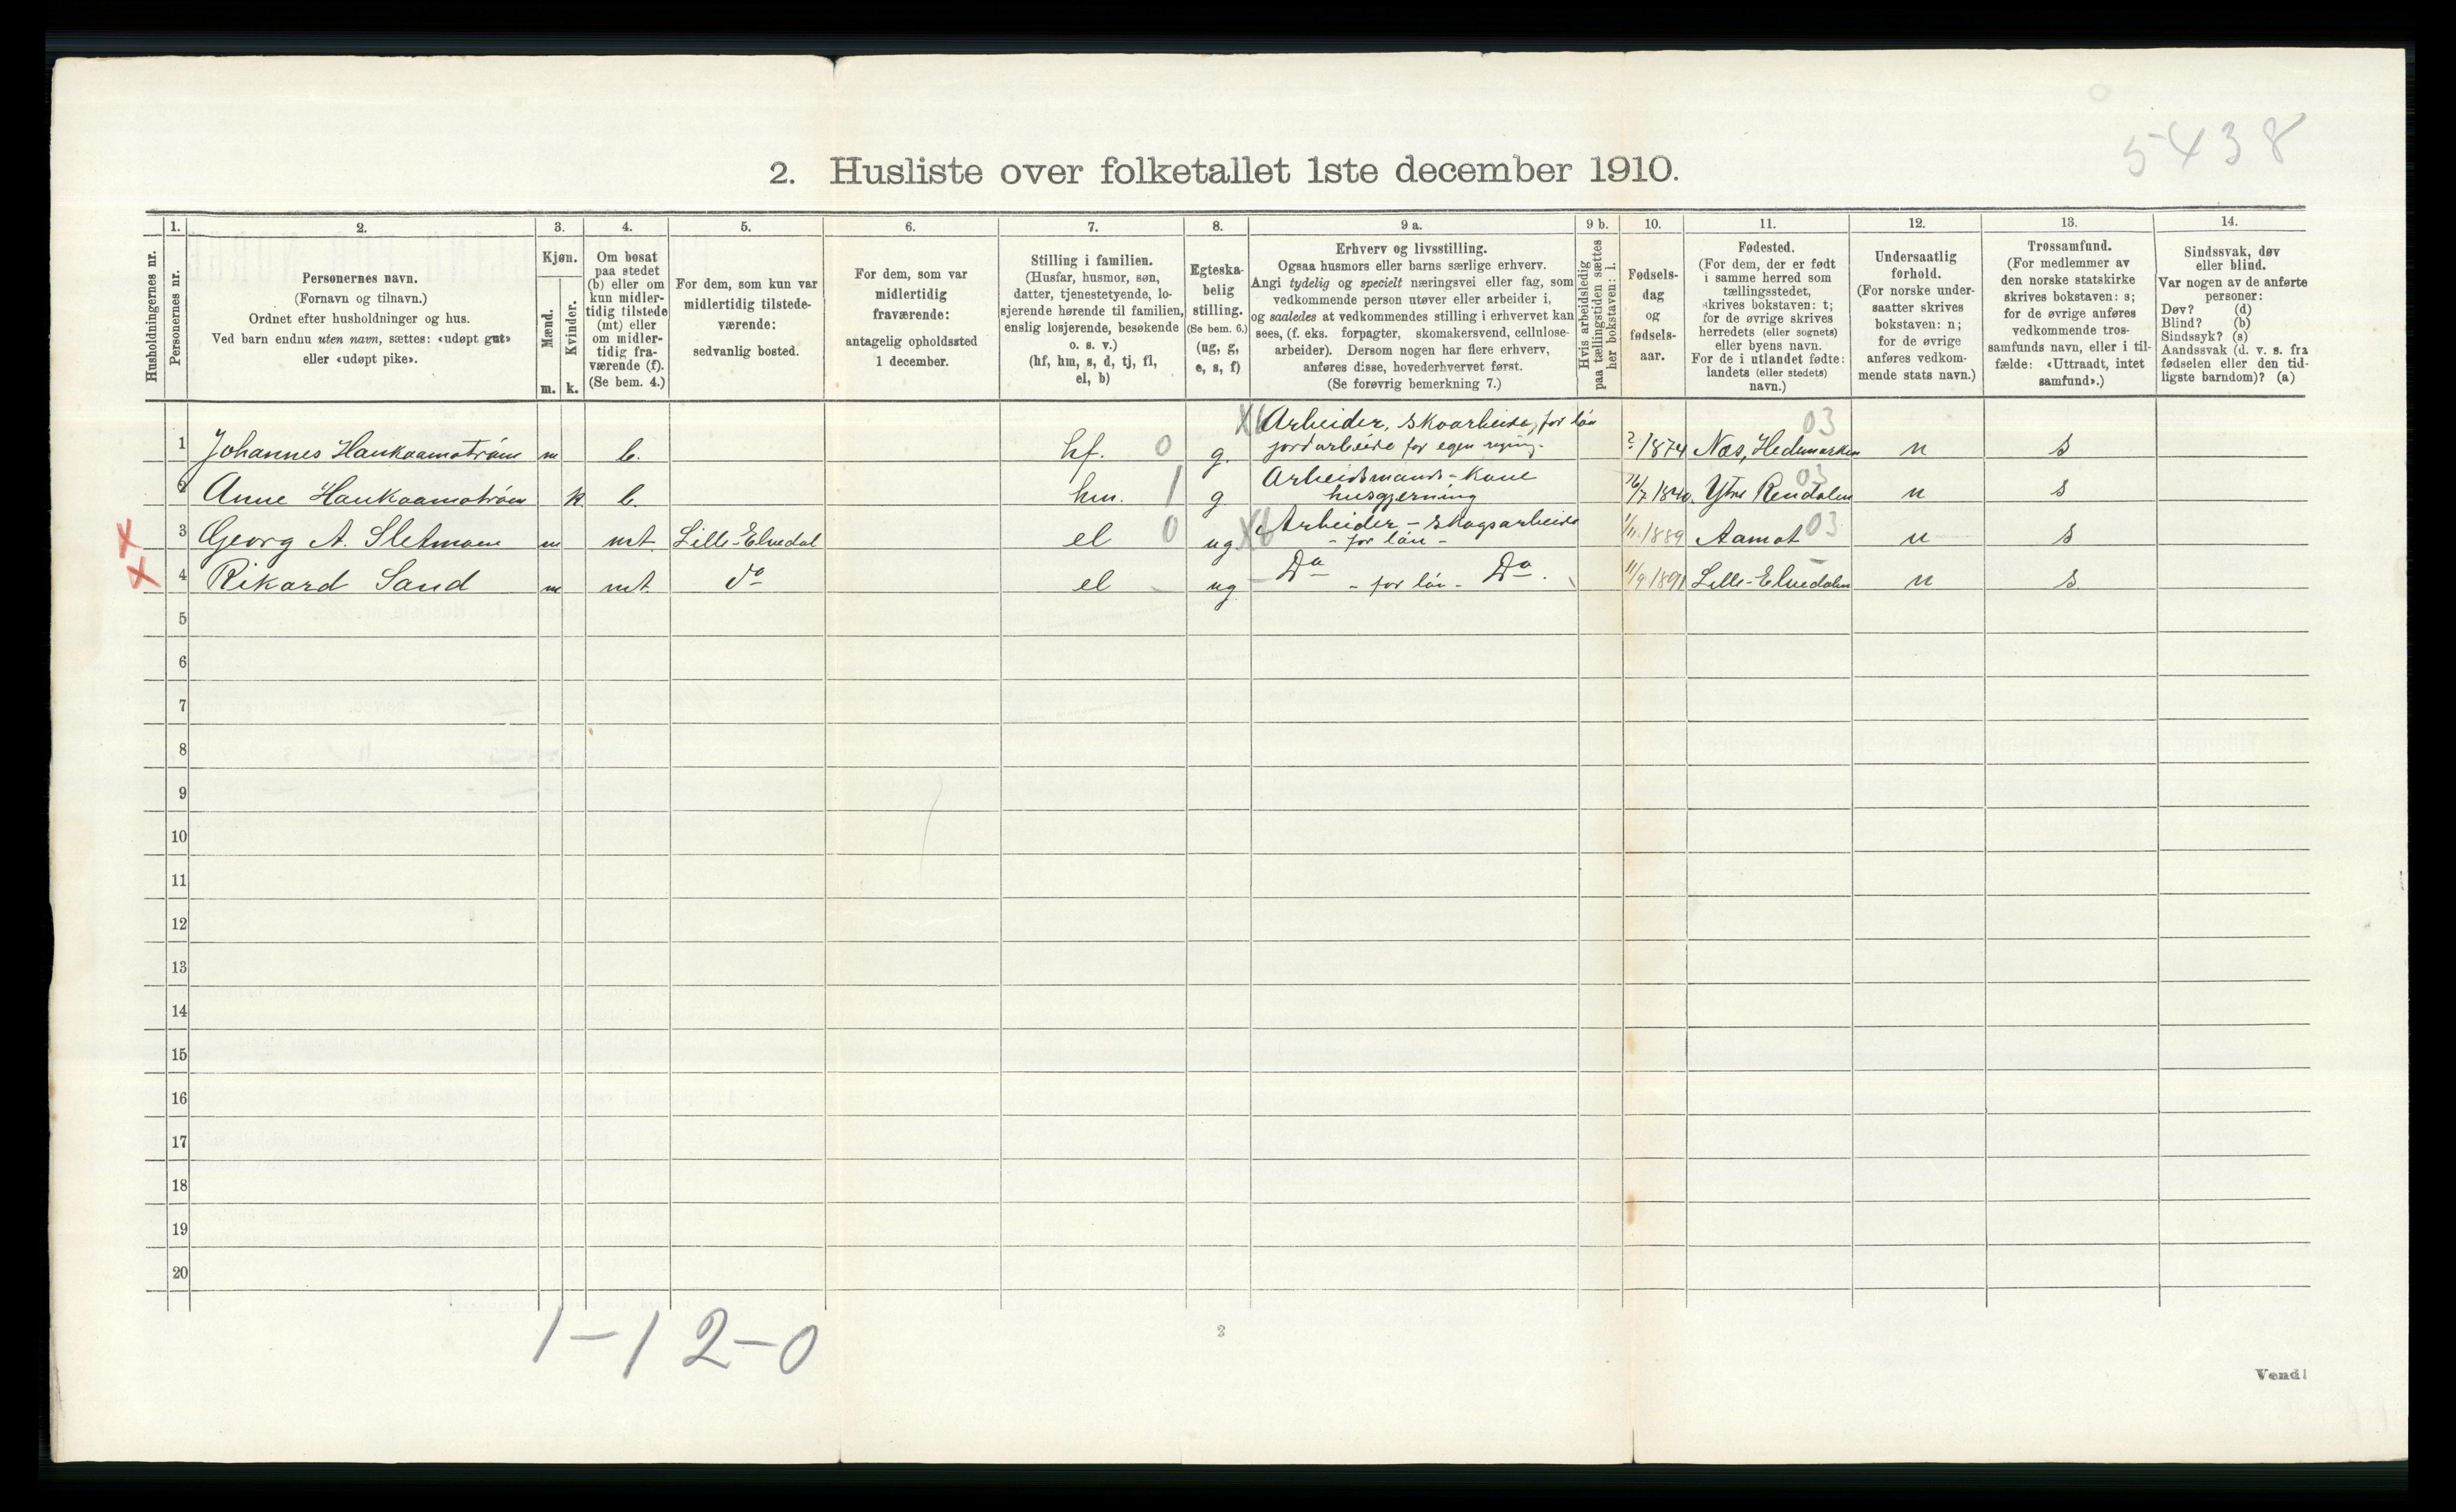 5438
2. Husliste over folketallet 1ste december 1910.
Husholdningernes nr.
1.
Personernes nr.
2.
Personernes navn.
(Fornavn og tilnavn.)
Ordnet efter husholdninger og hus.
Ved barn endnu uten navn, sættes: «udøpt gut»
eller «udøpt pike».
3.
Kjøn.
Mænd.
m.
Kvinder.
k.
4.
Om bosat
paa stedet
(b) eller om
kun midler-
tidig tilstede
(mt) eller
om midler-
tidig fra-
værende (f).
(Se bem. 4.)
5.
For dem, som kun var
midlertidig tilstede-
værende:
sedvanlig bosted.
6.
For dem, som var
midlertidig
fraværende:
antagelig opholdssted
1 december.
7.
Stilling i familien.
(Husfar, husmor, søn,
datter, tjenestetyende, lo-
sjerende hørende til familien,
enslig losjerende, besøkende
o. s. v.)
(hf, hm, s, d, tj, fl,
el, b)
8.
Egteska-
belig
stilling.
(Se bem. 6.)
(ug, g,
e, s, f)
9 a.
Erhverv og livsstilling.
Ogsaa husmors eller barns særlige erhverv.
Angi tydelig og specielt næringsvei eller fag, som
vedkommende person utøver eller arbeider i,
og saaledes at vedkommendes stilling i erhvervet kan
sees, (f. eks. forpagter, skomakersvend, cellulose-
arbeider). Dersom nogen har flere erhverv,
anføres disse, hovederhvervet først.
(Se forøvrig bemerkning 7.)
9 b.
Hvis arbeidsledig
paa tællingstiden sættes
her bokstaven: l.
10.
Fødsels-
dag
og
fødsels-
aar.
11.
Fødested.
(For dem, der er født
i samme herred som
tællingsstedet,
skrives bokstaven: t;
for de øvrige skrives
herredets (eller sognets)
eller byens navn.
For de i utlandet fødte:
landets (eller stedets)
navn.)
12.
Undersaatlig
forhold.
(For norske under-
saatter skrives
bokstaven: n;
for de øvrige
anføres vedkom-
mende stats navn.)
13.
Trossamfund.
(For medlemmer av
den norske statskirke
skrives bokstaven: s;
for de øvrige anføres
vedkommende tros-
samfunds navn, eller i til-
fælde: «Uttraadt, intet
samfund».)
14.
Sindssvak, døv
eller blind.
Var nogen av de anførte
personer:
Døv? (d)
Blind? (b)
Sindssyk? (s)
Aandssvak (d. v. s. fra
fødselen eller den tid-
ligste barndom)? (a)
1 Johannes Haukaamotrøen m b. hf. 0 g. Arbeider, skoarbeide, for løn jordarbeide for egen regning. ? 1874 Næs, Hedemarken 03 n s
2 Anne Haukaamotrøen k. b. hm. 1 g Arbeidsmands-kone husgjerning 16/7 1840. Ytre Rendalen 03 n s
3 Georg A. Sletmoen m mt. Lille-Elvedal el 0 ug Arbeider - skogsarbeide - for løn - 1/11 1889 Aamot 03 n s
4 Rikard Sand m mt. do el - ug Do - for løn - Do. 11/9 1891 Lille-Elvedalen n s.
5
6
7
8
9
10
11
12
13
14
15
16
17
18
19
20
1-1 2-0
2
Vend!